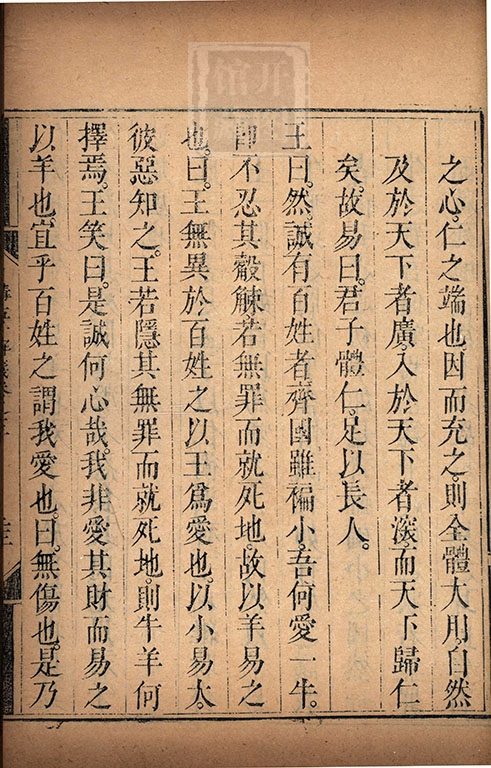 之心仁之端也因而充之則全體大用自然
及於天下者廣入於天下者深而天下歸仁
矣故易曰君子體仁足以長人。
王曰然誠有百姓者齊國雖褊小吾何愛一牛。
即不忍其觳觫若無罪而就死地故以羊易之
也。曰。王無異於百姓之以王爲愛也。以小易大。
彼惡知之。王若隱其無罪而就死地。則牛羊何
擇焉。王笑曰。是誠何心哉。我非愛其財而易之
以羊也宜乎百姓之謂我愛也。曰。無傷也。是乃